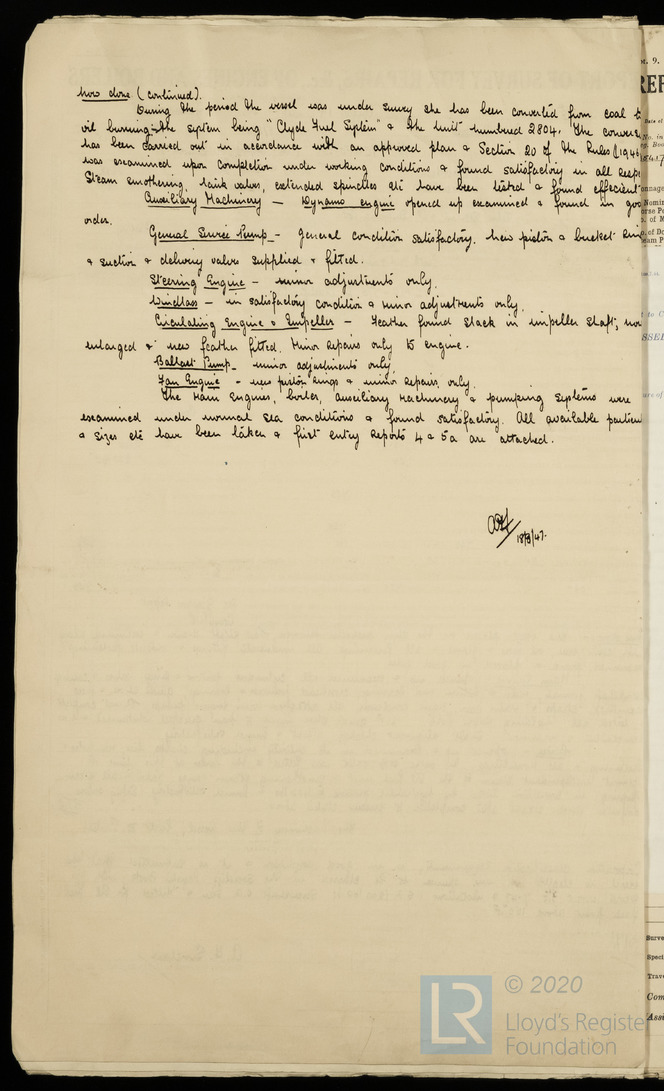 Now done (continued).
During the period the vessel was under survey she has been converted from coal to
oil burning - the system being "Clyde Fuel System" & the unit numbered 2804. The
has been carried out in accordance with an approved plan & Section 20 of the Rules (1946
was examined upon completion under working conditions & found satisfactory in all
Steam smothering, tank valves, extended spindles etc have been tested & found efficient
Auxiliary Machinery — Dynamo engine opened up examined & found in
order.
General Service Pump - General condition satisfactory. New piston & bucket
& suction & delivery valves supplied & fitted.
Steering Engine - minor adjustments only.
Windlass - in satisfactory condition & minor adjustments only.
Circulating Engine & Impeller - Feather found slack in impeller shaft,
enlarged & new feather fitted. Minor Repairs only to engine.
Ballast Pump - minor adjustments only.
Fan Engine - new piston rings & minor repairs only.
The Main Engines, boiler, auxiliary machinery & pumping systems were
examined under normal sea conditions & found satisfactory. All available
& sizes etc have been taken & first entry Reports 4 & 5a are attached.
18/3/47.
© 2020
LR
Lloyd's Register
Foundation